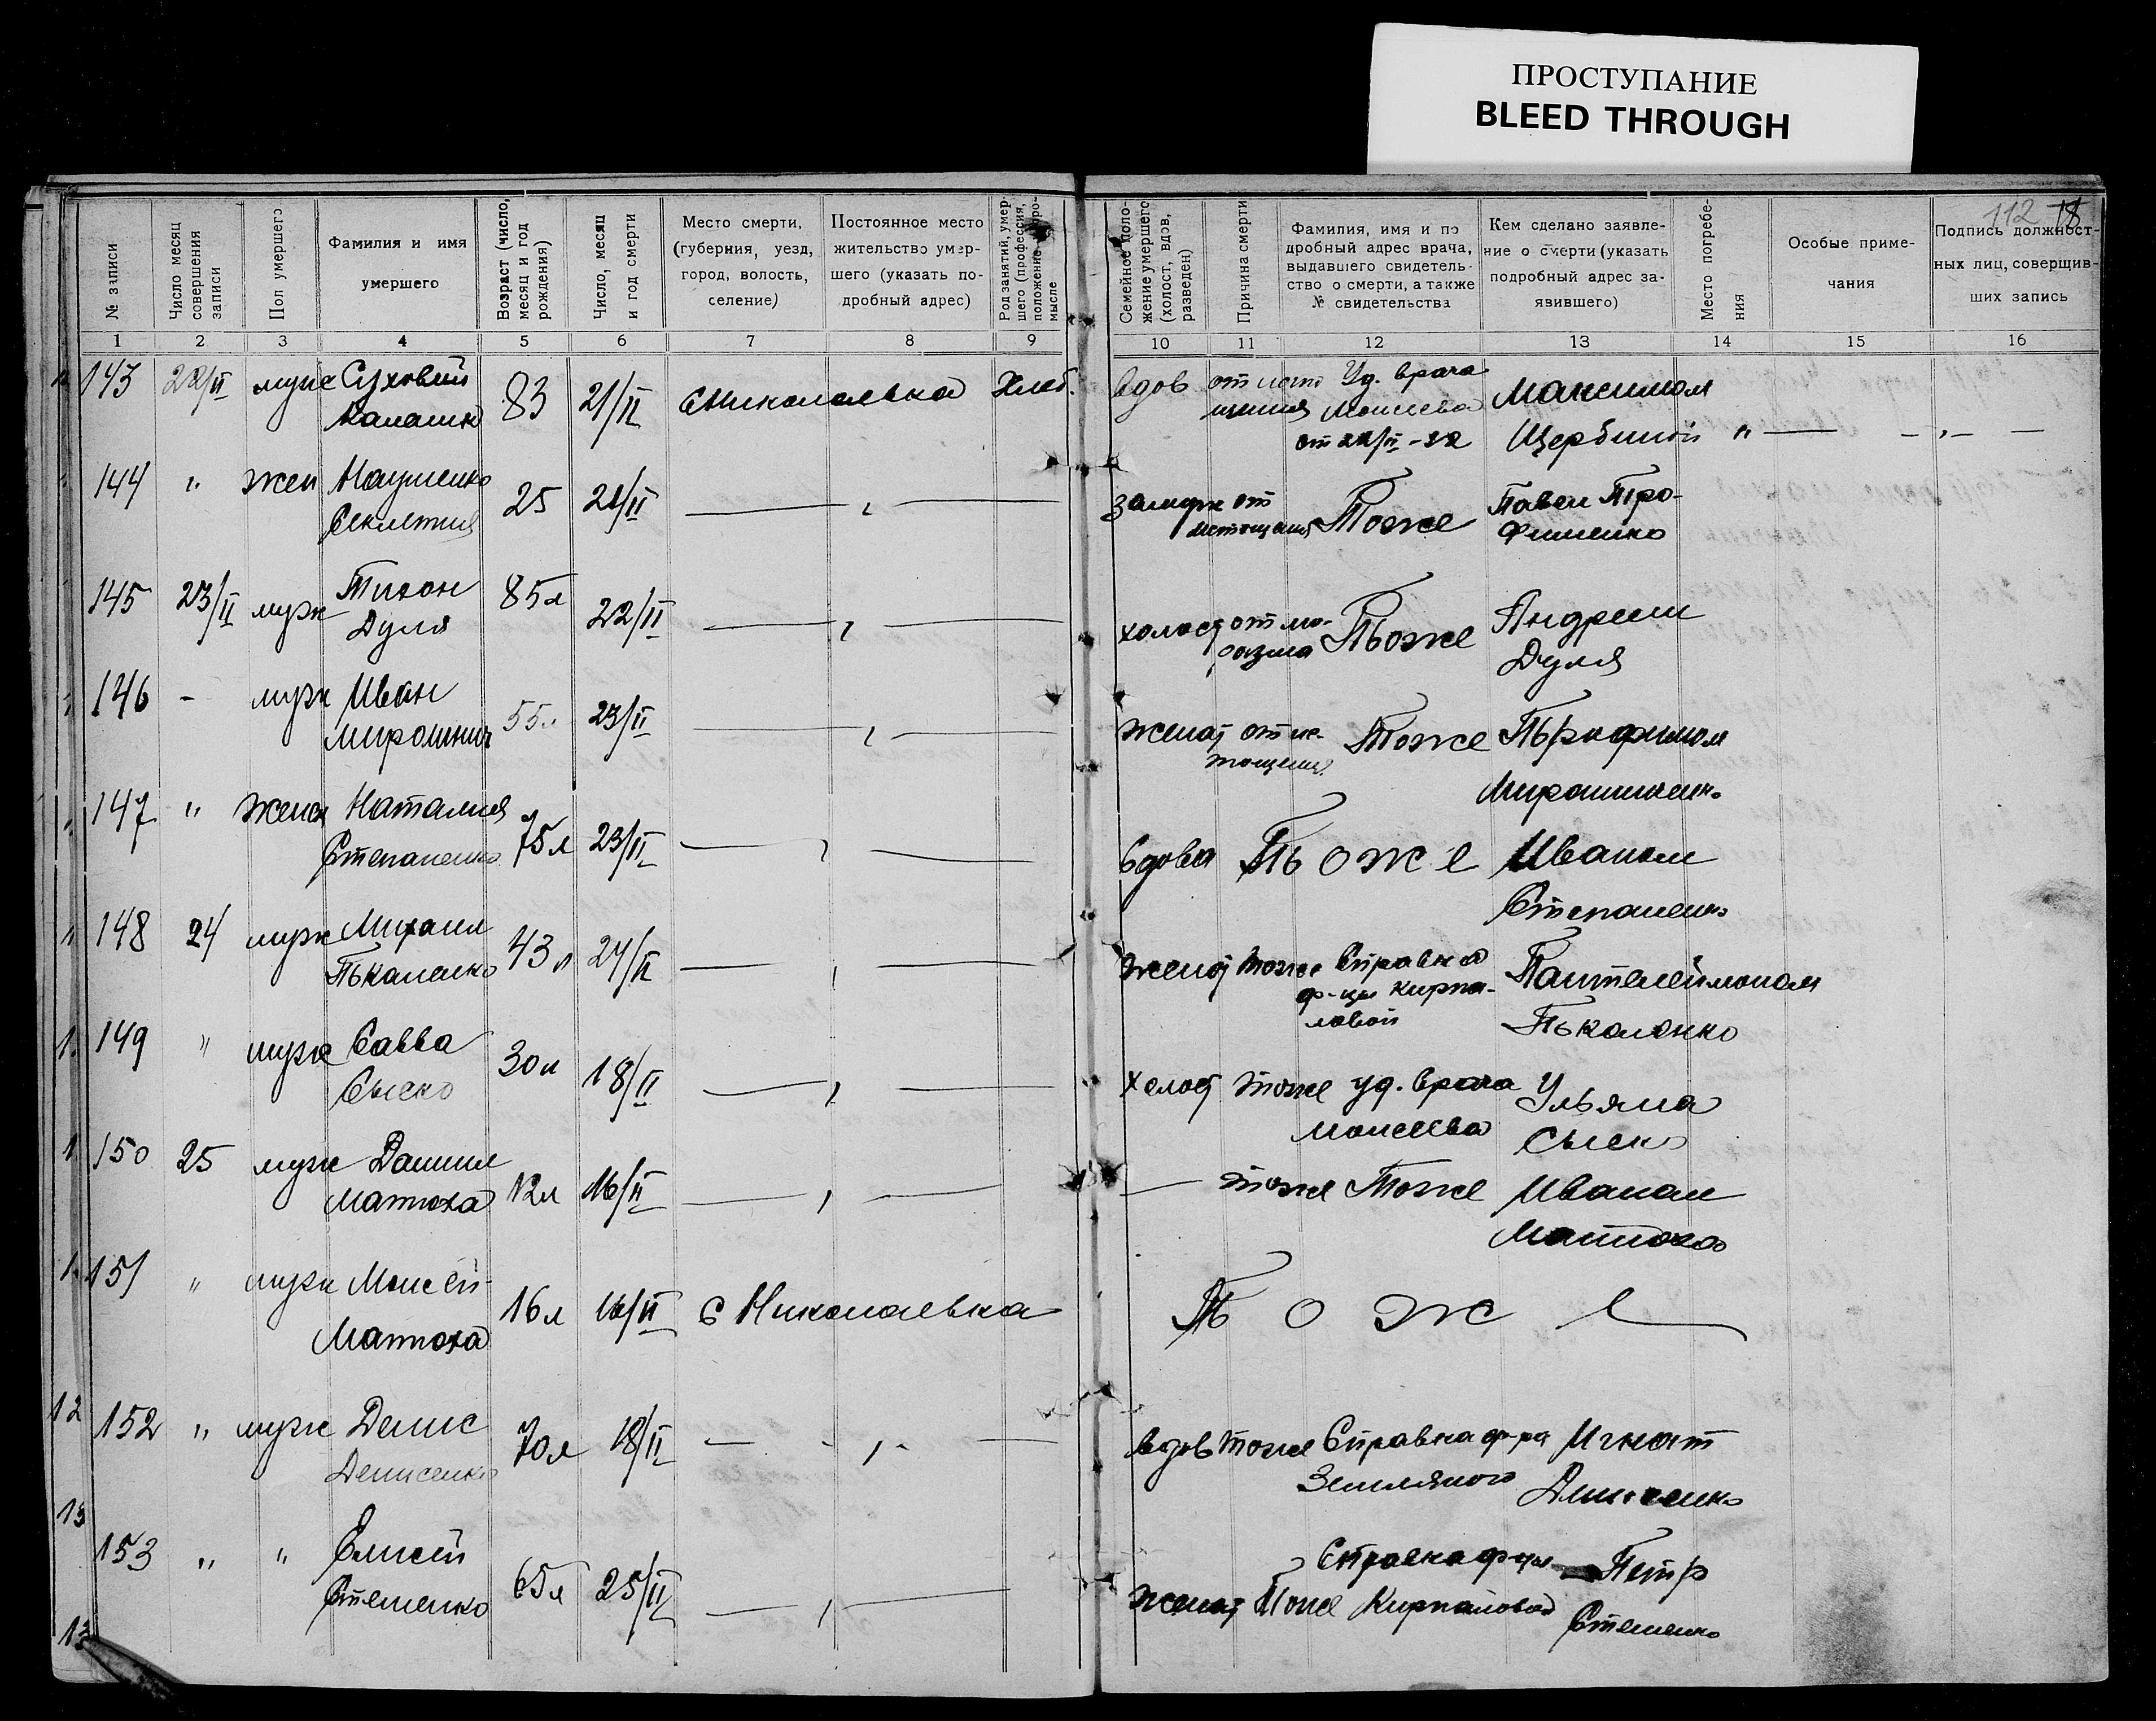 ПРОСТУПАНИЕ
BLEED THROUGH
112 18
№ записи
Число месяц
совершения
записи
Пол умершего
Фамилия и имя
умершего
Возраст (число,
месяц и год
рождения)
Число, месяц
и год смерти
Место смерти,
(губерния, уезд,
город, волость,
селение)
Постоянное место
жительство умер-
шего (указать по-
дробный адрес)
Род занятий, умер-
шего (профессия,
положение в про-
мысле
Семейное поло-
жение умершего
(холост, вдов,
разведен)
Причина смерти
Фамилия, имя и по
дробный адрес врача,
выдавшего свидетель-
ство о смерти, а также
№ свидетельства
Кем сделано заявле-
ние о смерти (указать
подробный адрес за-
явившего)
Место погребе-
ния
Особые приме-
чания
Подпись должност-
ных лиц, соверщив-
ших запись
1 2 3 4 5 6 7 8 9 10 11 12 13 14 15 16
143 22/II муж Суховий 83 21/II с Николаевка Хлеб. вдов от исто Уд. врача Максимом
щения Моисеева Щербиной
от 22/II-22
144 " жен Науменко 25 21/II — " — замуж от Тоже Павел Тро-
истощения фименко
145 23/II муж Тихон 85 л 22/II — " — холост от ма- Тоже Андреем
Дуля разма Дуля
146 - муж Иван 55 л 23/II — " — женат от ис- Тоже Трофимом
тощения Мирошниченко
147 " женск Наталия 75 л 23/II — " — вдова Тоже Иваном
Степаненко Степаненко
148 24 муж Михаил 43 л 24/II — " — женат тоже Справка Пантелеймоном
Ткаленко ф-цы Ткаленко
149 " муж Савва 30 л 18/II — " — холост тоже уд. врача Ульяна
Сыско Моисеева Сыско
150 25 муж Даниил 12 л 16/II — " — — тоже Тоже Иваном
Матюха Матюха
151 " муж Моисей 16 л 16/II с Николаевка Тоже
Матюха
152 " муж Денис 70 л 18/II — " — вдов тоже Справка ф-ра Игнат
Денисенко Земляного Денисенко
153 " " Елисей 65 л 25/II — " — женат Тоже Справка ф-цы Петр
Стеценко Стеценко
12
13
13